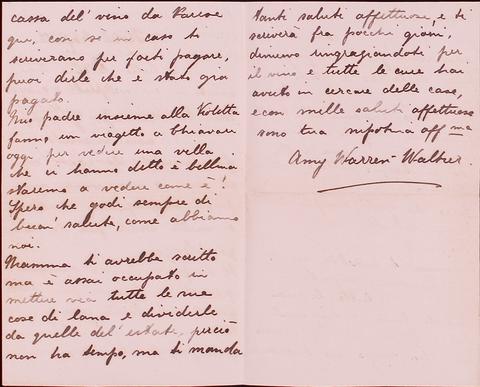 cassa del' vino da Varese
qui, così se in caso ti
scriverano per farti pagare,
puoi dirle che è stato gia
pagato.
Mio padre insieme alla Violetta
fanno un viagetto a Chiavari
oggi per vedere una villa
che ci hanno detto è bellina
staremo a vedere come è!
Spero che godi sempre di
buon' salute, come abbiamo
noi.
Mamma ti avrebbe scritto
ma è assai occupato in
mettere via tutte le sue
cose di lana e dividerle
da quelle del' estate, perciò
non ha tempo, ma ti manda
tanti saluti affettuosi, e ti
scriverà fra pochi giorni,
dinuovo ringraziandoti per
il vino e tutte le cure hai
avuto in cercare delle case,
e con mille saluti affettuose
sono tua nipotina aff ma
Amy Warren-Walker.